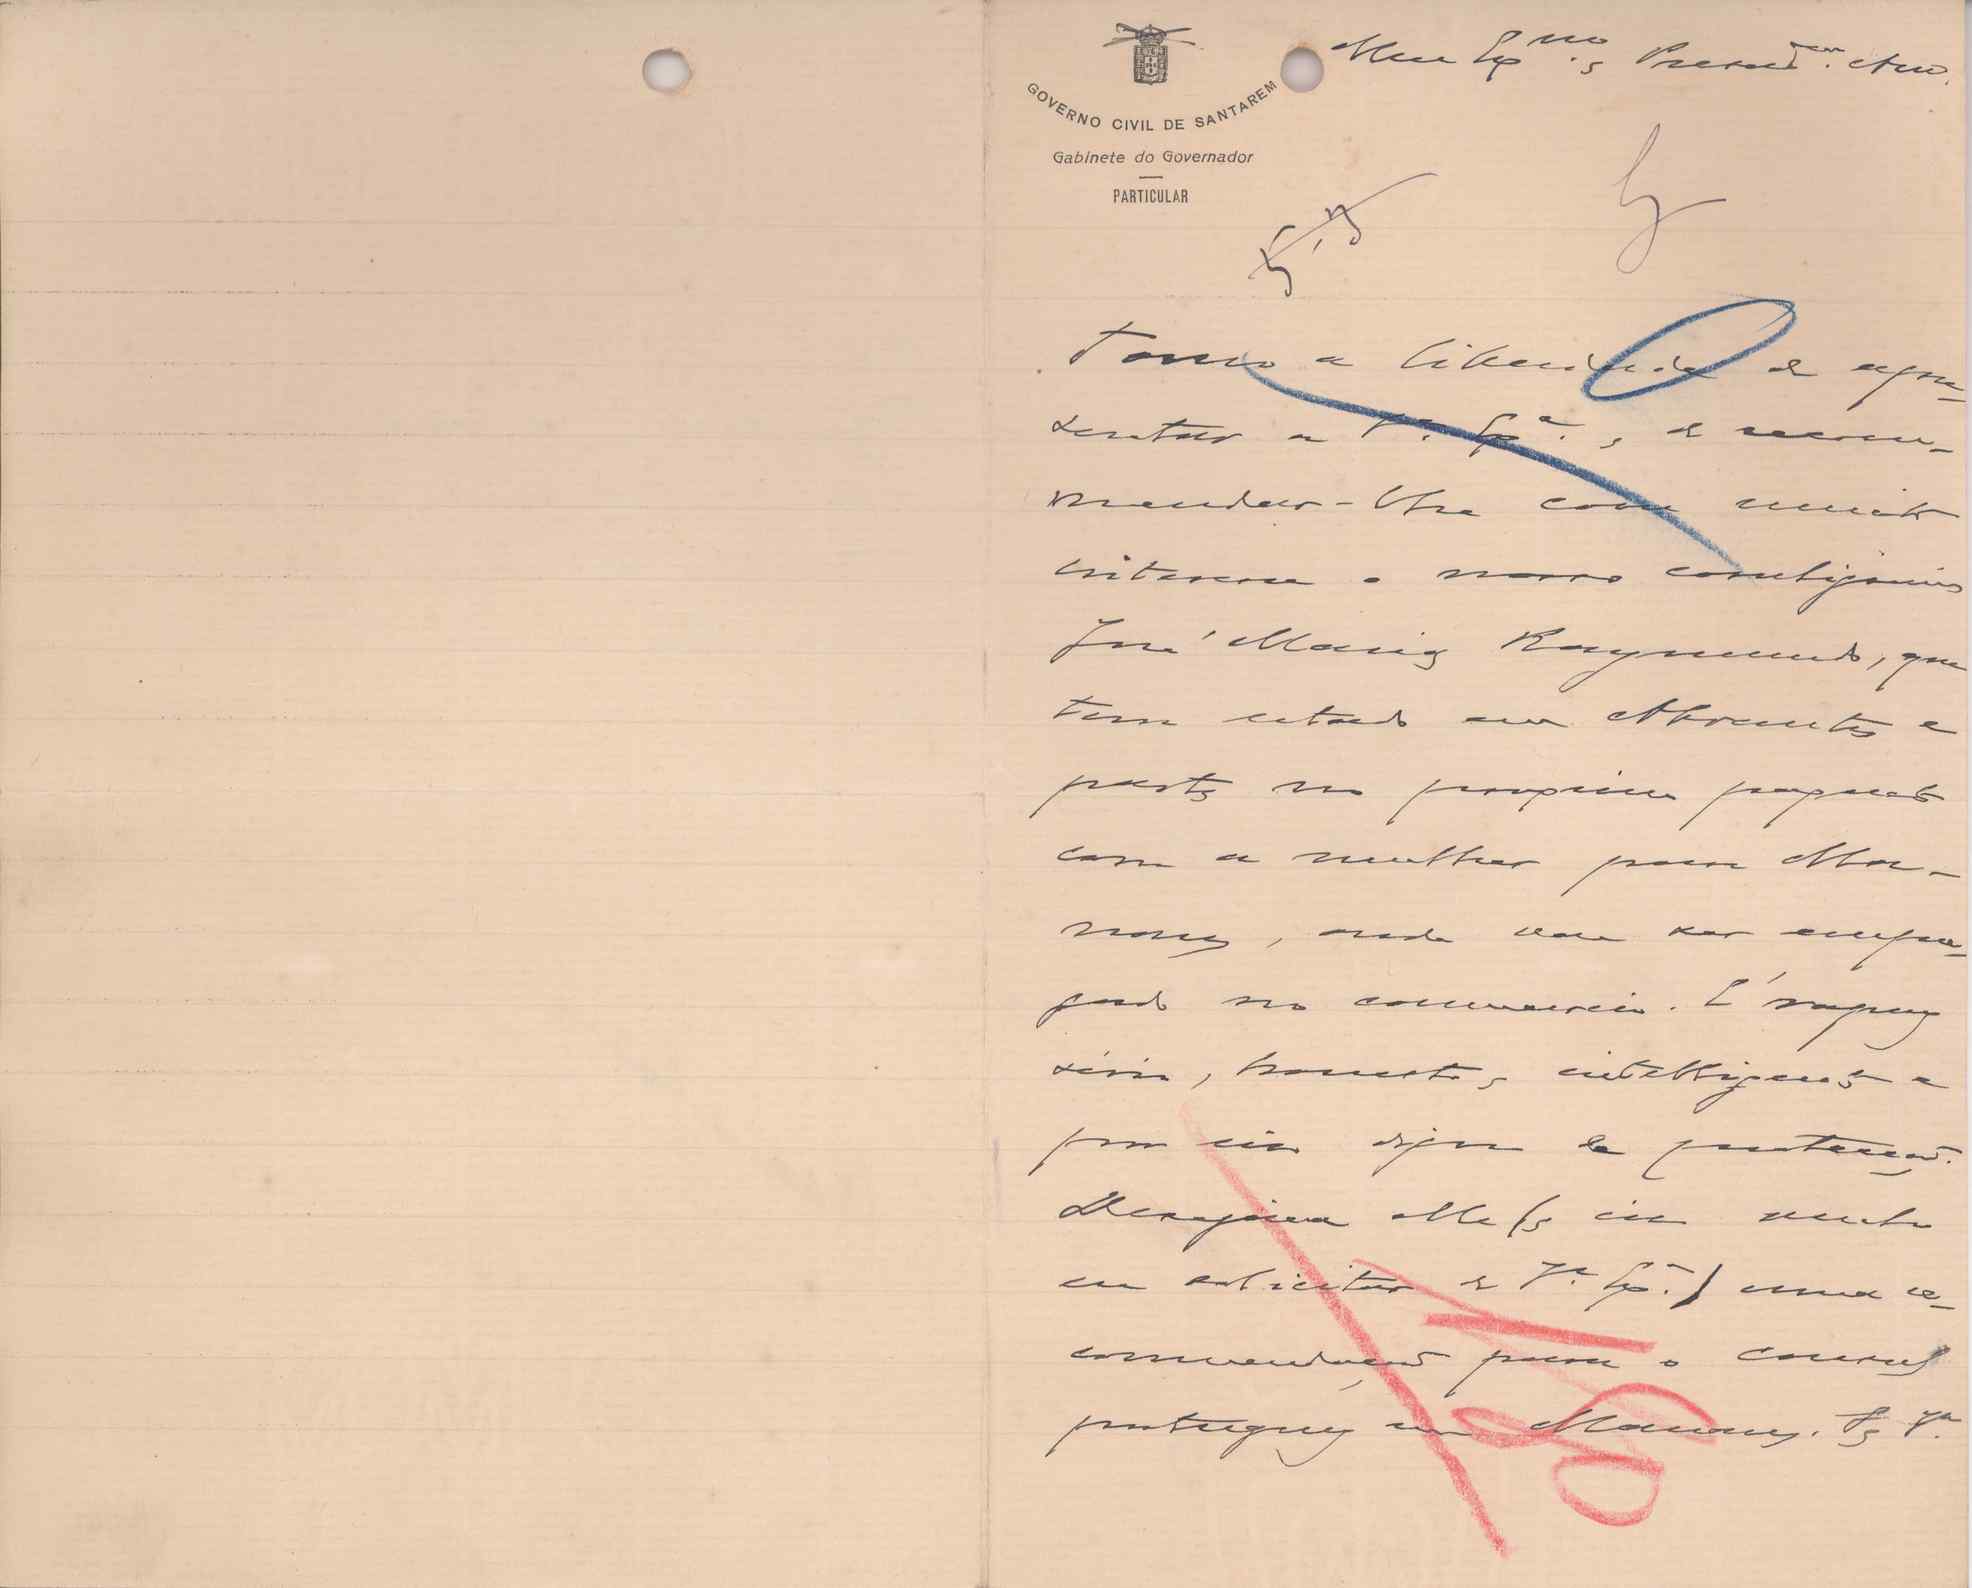 GOVERNO CIVIL DE SANTAREM
Gabinete do Governador
PARTICULAR
Meu Ex.mo e Presad.mo Am.
Tomo a liberdade de apre-
sentar a V.a Ex.a, e recom-
mendar-lhe com muito
interesse o nosso correligionario
José Maria Raymundo, que
tem estado em Abrantes e
parte no proximo paquete
com a mulher para Ma-
naus, onde vae ser empre-
gado no commercio. É rapaz
sério, honesto, intelligente e
por isso digno de protecção.
Desejava elle (e eu muito
em solicitar de V.a Ex.a) uma re-
commendação para o consul
portuguez em Manaus. Se V.a